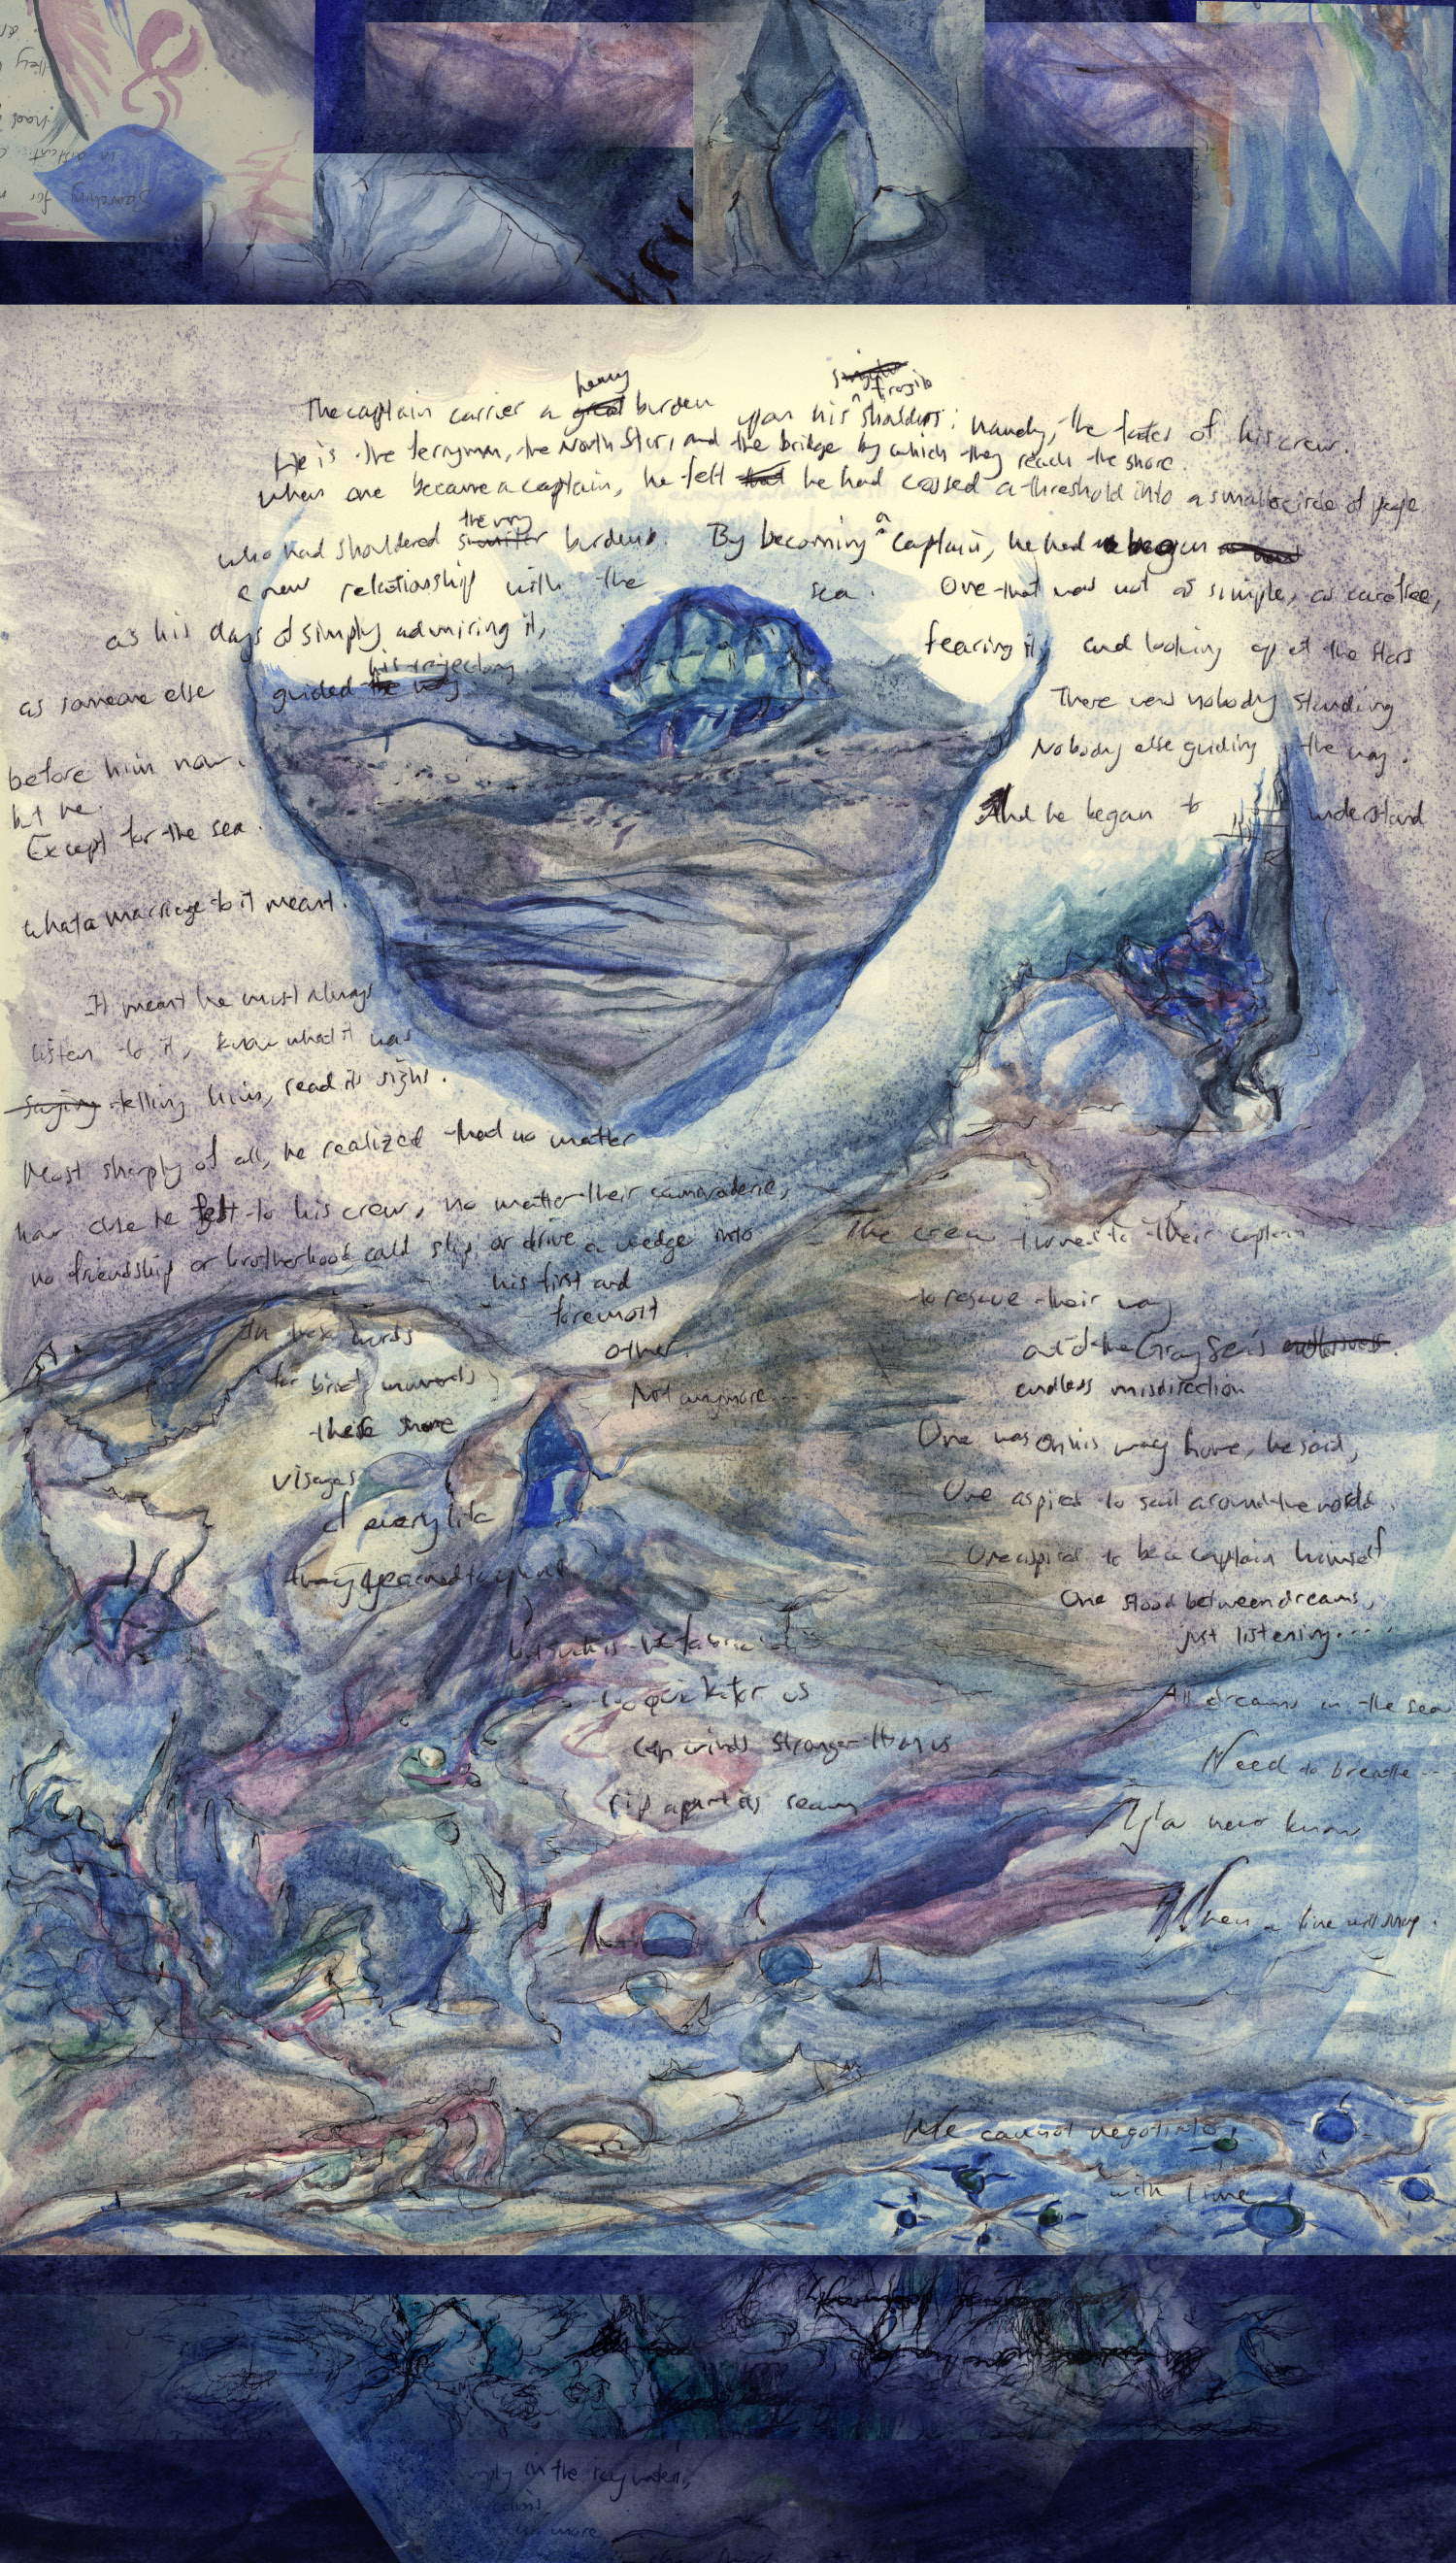 The captain carrier a great heavy burden upon his fragile shoulders: namely, the fates of his crew.
He is the ferryman, the North Star, and the bridge by which they reach the shore.
When one became a captain, he felt that he had crossed a threshold into a smaller circle of people
who had shouldered the very burdens. By becoming a captain, he had begun
a new relationship with the sea. One that was not as simple, as carefree,
as his days of simply admiring it, fearing it, and looking up at the stars
as someone else guided the way his trajectory. There was nobody standing
before him now. Nobody else guiding the way.
but he.
Except for the sea. And he began to understand
what a marriage to it meant.
It meant he must always
listen to it, know what it was
saying telling him, read its sighs.
Most sharply of all, he realized that no matter
how close he felt to his crew, no matter their camaraderie,
no friendship or brotherhood could slip or drive a wedge into
his first and
foremost
other.
Not anymore...
The crew turned to their captain
to rescue their way
out of the Gray Sea's
endless misdirection
One was on his way home, he said,
One aspired to sail around the world..
One aspired to be a captain himself
One stood between dreams,
just listening....
In these
for brief moments
these
visages
of every life
they yearned to
but such is the fabric
too quick for us
winds stronger than us
rip apart as seams
All dreams in the sea
Need to breathe...
Ya never know
When a line will snap.
We cannot negotiate
with time
Searching for
in the
no more